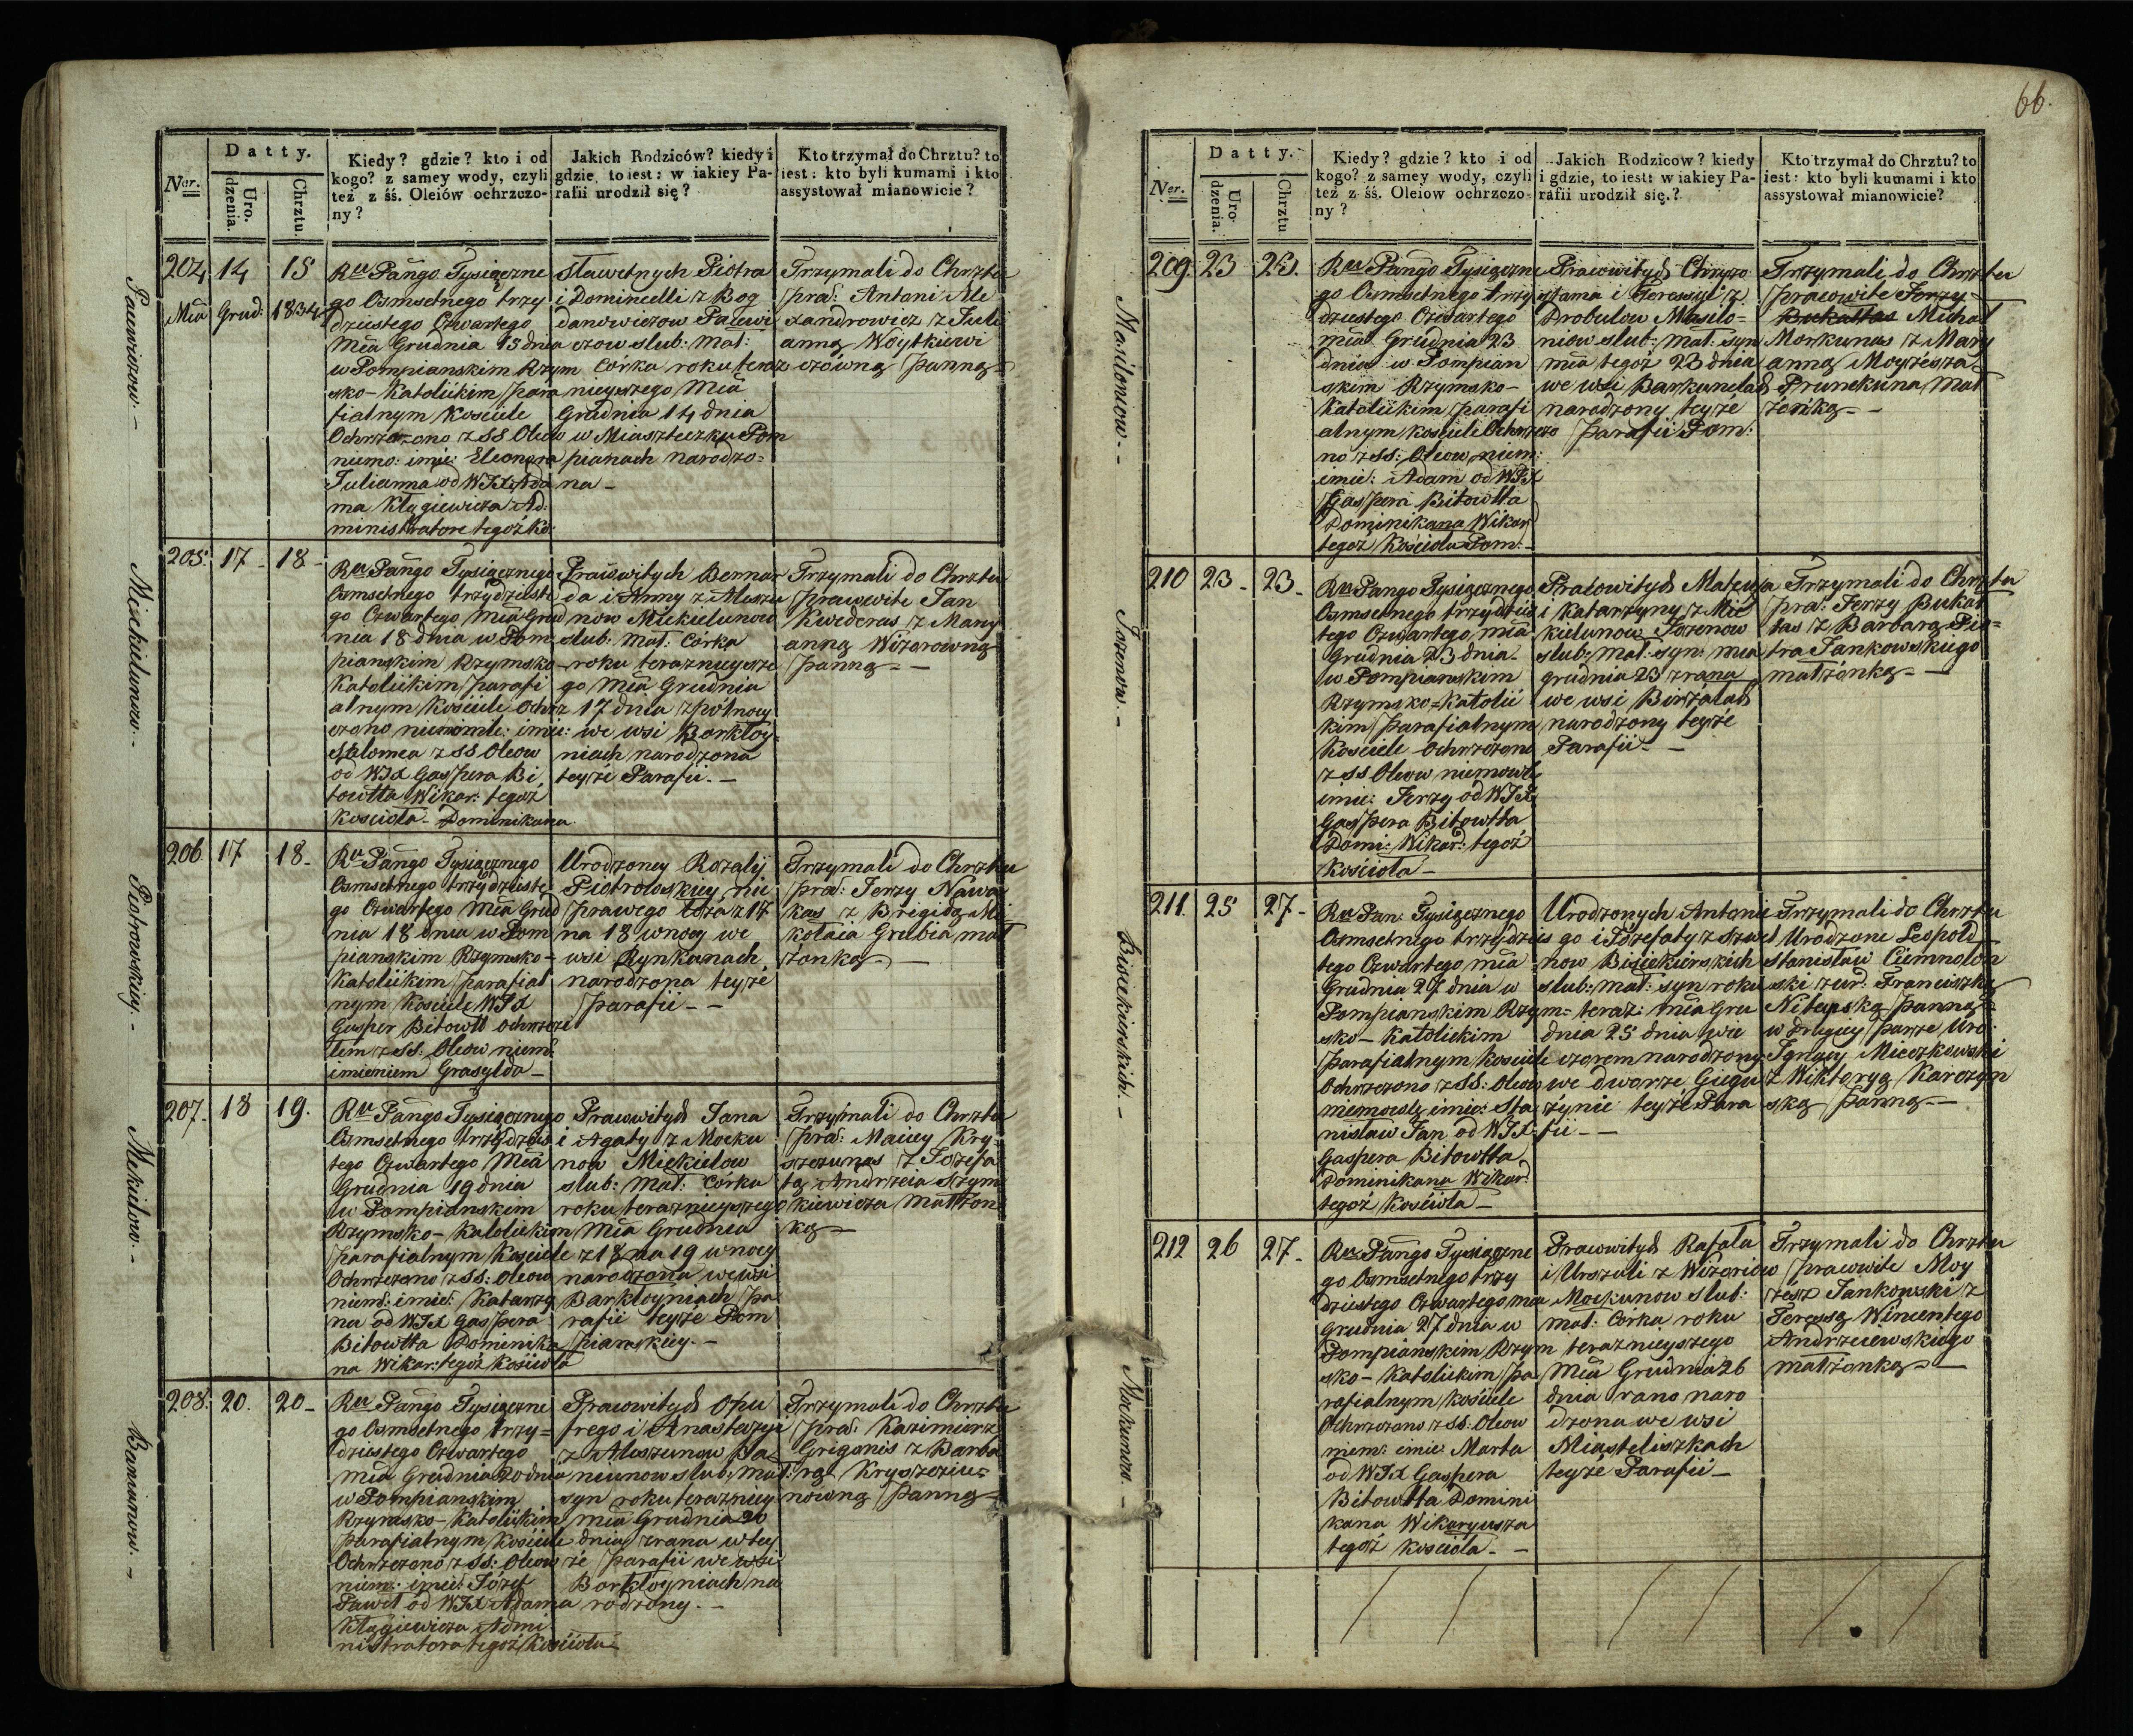 66.
Datty.
Ner.
Uro-
dzenia.
Chrztu.
Kiedy? gdzie? kto i od
kogo? z samey wody, czyli
też z śś. Oleiów ochrzczo-
ny?
Jakich Rodziców? kiedy i
gdzie, to iest: w iakiey Pa-
rafii urodził się?
Kto trzymał do Chrztu? to
iest: kto byli kumami i kto
assystował mianowicie?
Pacewiczow. -
204 14 15
Mca Grud: 1834
Ru Pańgo Tysiączne
go Osmsetnego trzy
dziestego Czwartego
Mca Grudnia 15 dnia
w Pompianskim Rzym
sko-Katolickim para
fialnym Kościele
Ochrzczono z SS Oleow
niemo: imie: Eleonora
Julianna od WJX Ada
ma Kłągiewicza Ad:
ministratore tegoż ko:
Sławetnych Piotra
i Domincelli z Bog
danowiczow Pacewi
czow slub: Mał:
Córka roku teraz
nieyszego Mca
Grudnia 14 dnia
w Miasteczku Pom
pianach narodzo=
na -
Trzymali do Chrztu
pra: Antoni Ale
xandrowicz z Juli
anną Woytkiewi
czówną panną
Mickielunow. -
205. 17 - 18 -
Ru Pańgo Tysiącznego
Osmsetnego trzydzieste
go Czwartego Mca Grud
nia 18 dnia w Pom
pianskim Rzymsko
Katolickim parafi
alnym Kościele Ochrz
czono niemowle: imie:
Salomea z SS Oleow
od WJX Gaspera Bi
towtta Wikar: tegoż
Kościoła - Dominikana
Pracowitych Bernar
da i Anny z Aleszu
now Mickielunow
slub: Mał: Córka
roku teraznieysze
go Mca Grudnia
17 dnia z północy
we wsi Borkłoy-
niach narodzona
teyże Parafii. -
Trzymali do Chrztu
pracowite Jan
Kwederas z Mary
anną Wizorowną
panną - -
Piotrowskiey. -
206 17 18 -
Ru Pańgo Tysiącznego
Osmsetnego trzydzieste
go Czwartego Mca Grud
nia 18 dnia w Pom
pianskim Rzymsko-
Katolickim parafial
nym Kościele WJX
Gasper Bitowtt ochrzci
łem z SS: Oleow niem:
imieniem Grasylda -
Urodzoney Rozalij
Piotrowskiey nie
prawego łoża z 17
na 18 w nocy we
wsi Rynkunach
narodzona teyże
parafii - -
Trzymali do Chrztu
pra: Jerzy Nawa
kas z Brigidą Mi
kołaia Grubia mał
żonką - -
Mickielow. -
207 - 18 19.
Ru Pańgo Tysiącznego
Osmsetnego trzydzies
tego Czwartego Mca
Grudnia 19 dnia
w Pompianskim
Rzymsko-Katolickim
parafialnym Kościele
Ochrzczono z SS: Oleow
niem: imie: Katarzy
na od WJX Gaspera
Bitowtta Dominika
na Wikar: tegoż Kościoła
Pracowitych Jana
i Agaty z Mocku
now Mickielow
slub: Mał: Córka
roku teraznieyszego
Mca Grudnia
z 18 na 19 w nocy
narodzona we wsi
Barkłoyniach pa
rafii teyże Pom
pianskiey. -
Trzymali do Chrztu
pra: Maciey Kry-
szczunas z Jozefa
tą Andrzeia Szym
kiewicza Małżon
ką -
Bananow. -
208. 20. 20 -
Ru Pańgo Tysiączne
go Osmsetnego trzy=
dziestego Czwartego
Mca Grudnia 20 dnia
w Pompianskim
Rzymsko-Katolickim
parafialnym Kościele
Ochrzczono z SS: Oleow
niem: imie: Józef
Paweł od WJX Adama
Kłągiewicza Admi
nistratora tegoż Kościoła
Pracowitych Onu
frego i Anastazyi
z Aleszunow
slub: Mał:
syn roku terazniey
Mca Grudnia 20
dnia z rana w tey
że parafii we wsi
Borkłoyniach na
rodzony. -
Trzymali do Chrztu
pra: Kazimierz
Grigonis z Barba
rą Kryszcziu=
nowną panną -
Datty.
Ner.
Uro-
dzenia.
Chrztu
Kiedy? gdzie? kto i od
kogo? z samey wody, czyli
też z śś. Oleiow ochrzczo-
ny?
Jakich Rodzicow? kiedy
i gdzie, to iest: w iakiey Pa-
rafii urodził się.?
Kto trzymał do Chrztu? to
iest: kto byli kumami i kto
assystował mianowicie?
Masiloniow. -
209. 23 23.
Ru Pańgo Tysiączne
go Osmsetnego trzy
dziestego Czwartego
mca Grudnia 23
dnia w Pompian
skim Rzymsko-
Katolickim parafi
alnym kościele Ochrzczo
no z SS: Oleow niem:
imie: Adam od WJX
Gaspera Bitowtta
Dominikana Wikar
tegoż Kościoła Pom: -
Pracowitych Chryzo
stama i Teressyi z
Drobulow Masilo=
niow slub: Mał: syn
mca tegoż 23 dnia
we wsi Barkunelach
narodzony teyże
parafii Pom:
Trzymali do Chrztu
pracowite Jerzy
Michał
Morkunas z Mary
anną Moyżesza
Prunskuna mał
żonką - -
Jozonow. -
210 23 - 23 -
Ru Pańgo Tysiącznego
Osmsetnego trzydzies
tego Czwartego mca
Grudnia 23 dnia
w Pompianskim
Rzymsko=Katolic
kim parafialnym
Kościele Ochrzczono
z SS Oleow niemowle
imie: Jerzy od WJX
Gaspera Bitowtta
Domi: Wikar: tegoż
Kościoła -
Pracowitych Mateusza
i Katarzyny z Mic
kielunow Jozonow
slub: mał: syn: mca
grudnia 23 z rana
we wsi Birżalach
narodzony teyże
Parafii - -
Trzymali do Chrztu
pra: Jerzy Bukat
tas z Barbarą Pio=
tra Jankowskiego
małżonką - -
Bisiekierskich. -
211. 25 27 -
Ru Pan: Tysiącznego
Osmsetnego trzydzies
tego Czwartego mca
Grudnia 27 dnia w
Pompianskim Rzym=
sko-Katolickim
parafialnym Kościele
Ochrzczono z SS: Oleow
niemowle imie: Sta
nisław Jan od WJX
Gaspera Bitowtta
Dominikana Wikar:
tegoż Kościoła -
Urodzonych Antonie
go i Józefaty z Szwet
now Bisiekierskich
slub: mał: syn roku
teraz: mca Gru
dnia 25 dnia wie
czorem narodzony
we dworze Giegu
żynie teyże Para
fii - -
Trzymali do Chrztu
Urodzone Leopold
Stanisław Ciemnołoń
ski z ur: Franciszką
panną
w drugiey parze Uro:
Ignacy Mieczkowski
z Wiktoryą Karczyn
ską panną - -
Mockunow. -
212 26 27 -
Ru Pańgo Tysiączne
go Osmsetnego trzy
dziestego Czwartego mca
Grudnia 27 dnia w
Pompianskim Rzym
sko-Katolickim pa
rafialnym kościele
Ochrzczono z SS: Oleow
niem: imie: Marta
od WJX Gaspera
Bitowtta Domini
kana Wikaryusza
tegoż kościoła. -
Pracowitych Rafała
i Urszuli z Wizoriow
Mockunow slub:
mał: Córka roku
teraznieyszego
Mca Grudnia 26
dnia rano naro
dzona we wsi
Miasteliszkach
teyże Parafii -
Trzymali do Chrztu
pracowite Moy
żesz Jankowski z
Teressą Wincentego
Andrzeiewskiego
małżonką - -